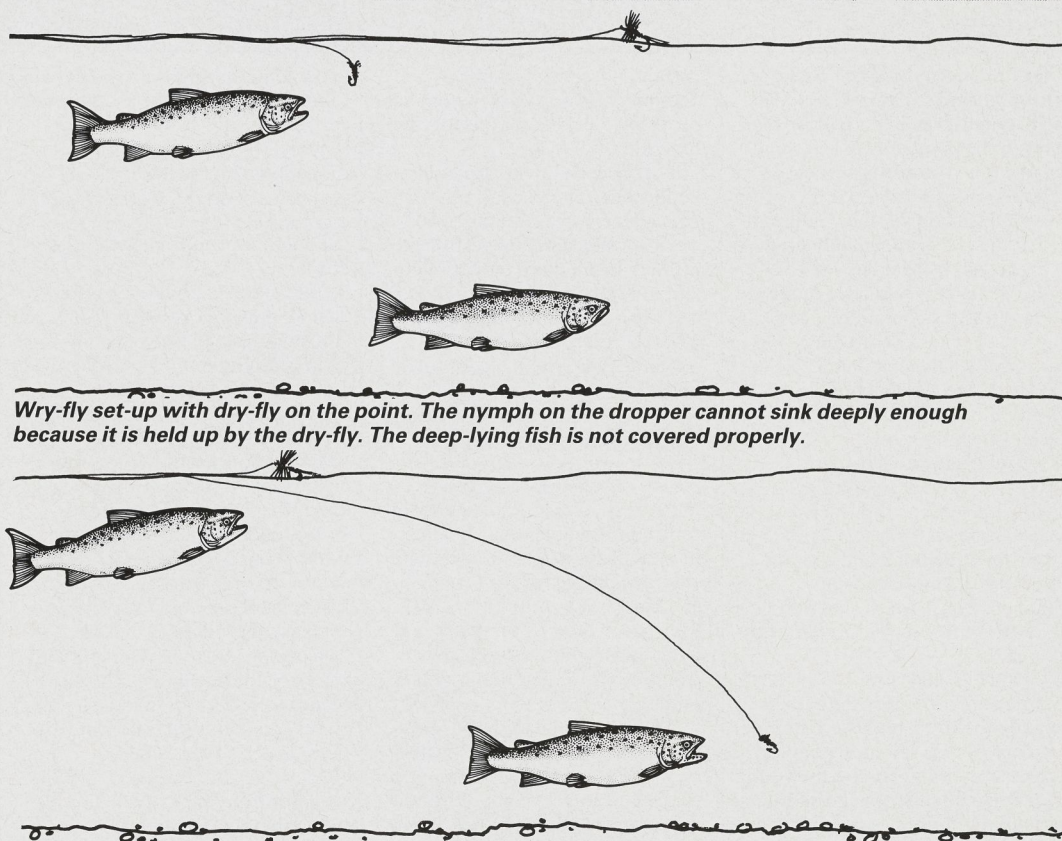 Wry-fly set-up with dry-fly on the point. The nymph on the dropper cannot sink deeply enough
because it is held up by the dry-fly. The deep-lying fish is not covered properly.